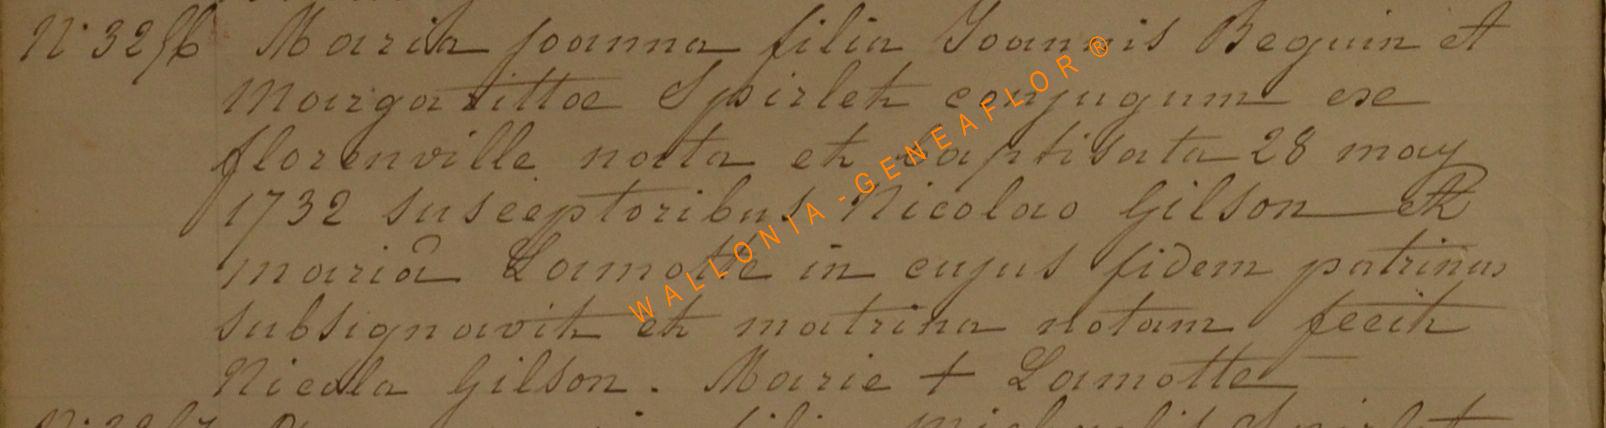 N° 3256 Maria joanna filia Joannis Beguin et
Margarittae Spirlet conjugum ex
florenville nata et baptisata 28 may
1732 susceptoribus Nicolao Gilson et
mariâ Lamotte in cujus fidem patrinus
subsignavit et matrina notam fecit
Nicola Gilson. Marie + Lamotte
filia michaelis Spirlet
WALLONIA-GENEAFLOR®